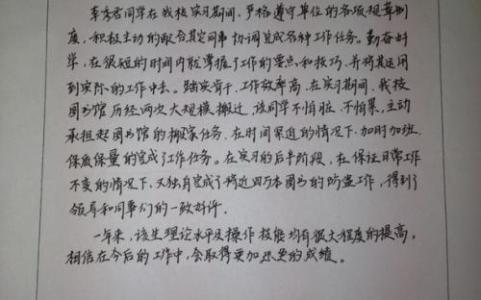 同学在我校实习期间,严格遵守单位的各项规章制
度,积极主动的配合其它同事协调完成各种工作任务。勤奋好
学,在很短的时间内就掌握了工作的要点和技巧,并将其运用
到实际的工作中去。踏实肯干,工作效率高,在实习期间,我校
图书馆历经两次大规模搬迁,该同学不怕脏、不怕累,主动
承担起图书馆的搬家任务,在时间紧迫的情况下,加时加班,
保质保量的完成了工作任务。在实习的后半阶段,在保证日常工作
不变的情况下,又独自完成了将近四万本图书的防盗工作,得到了
领导和同事们的一致好评。
一年来,该生理论水平及操作技能均有很大程度的提高,
相信在今后的工作中,会取得更加的成绩。